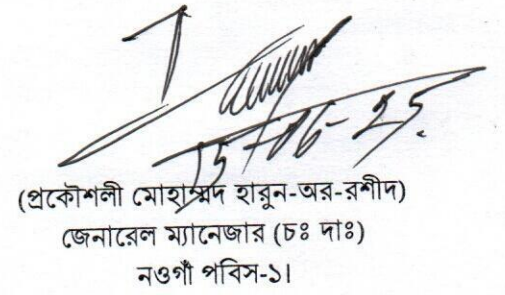 15-06-25
(প্রকৌশলী মোহাম্মদ হারুন-অর-রশীদ)
জেনারেল ম্যানেজার (চঃ দাঃ)
নওগাঁ পবিস-১।